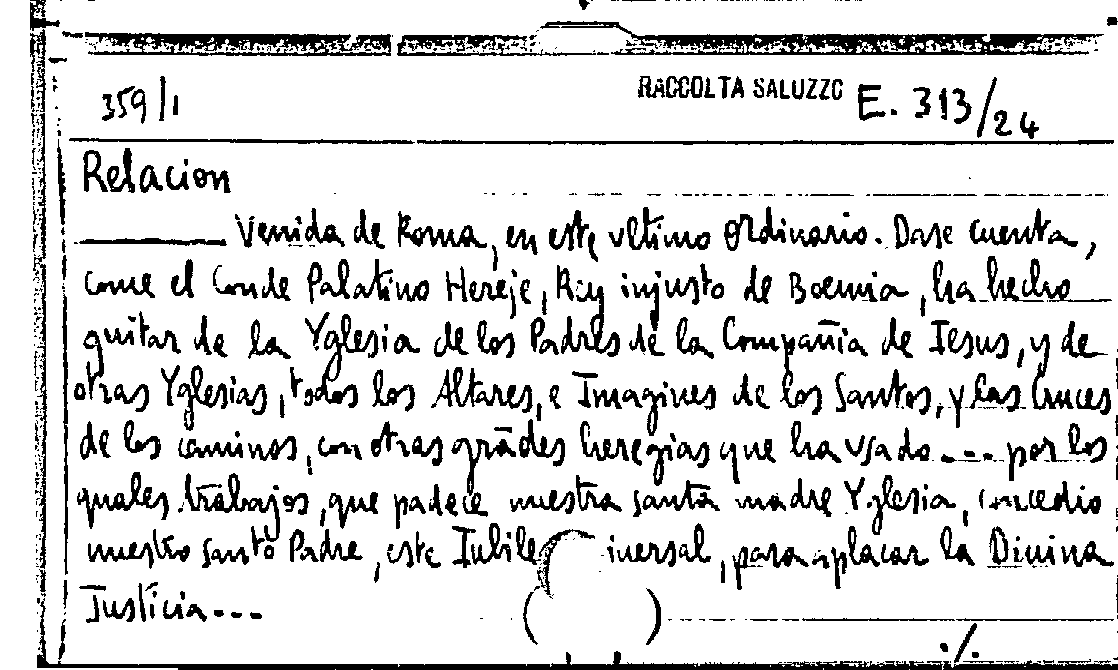 359/1
RACCOLTA SALUZZO E. 313/24
Relacion
Venida de Roma, en este vltimo ordinario. Dase cuenta,
come el Conde Palatino Hereje, Rey injusto de Boemia, ha hecho
quitar de la Yglesia de los Padres de la Compañia de Iesus, y de
otras Yglesias, todos los Altares, e Imagines de los Santos, y las Cruces
de los caminos, con otras grãdes heregias que ha vsado --- por los
quales trabajos, que padece nuestra santa madre Yglesia, concedio
nuestro santo Padre, este Iubile iuersal, para aplacar la Diuina
Justicia ---
./.